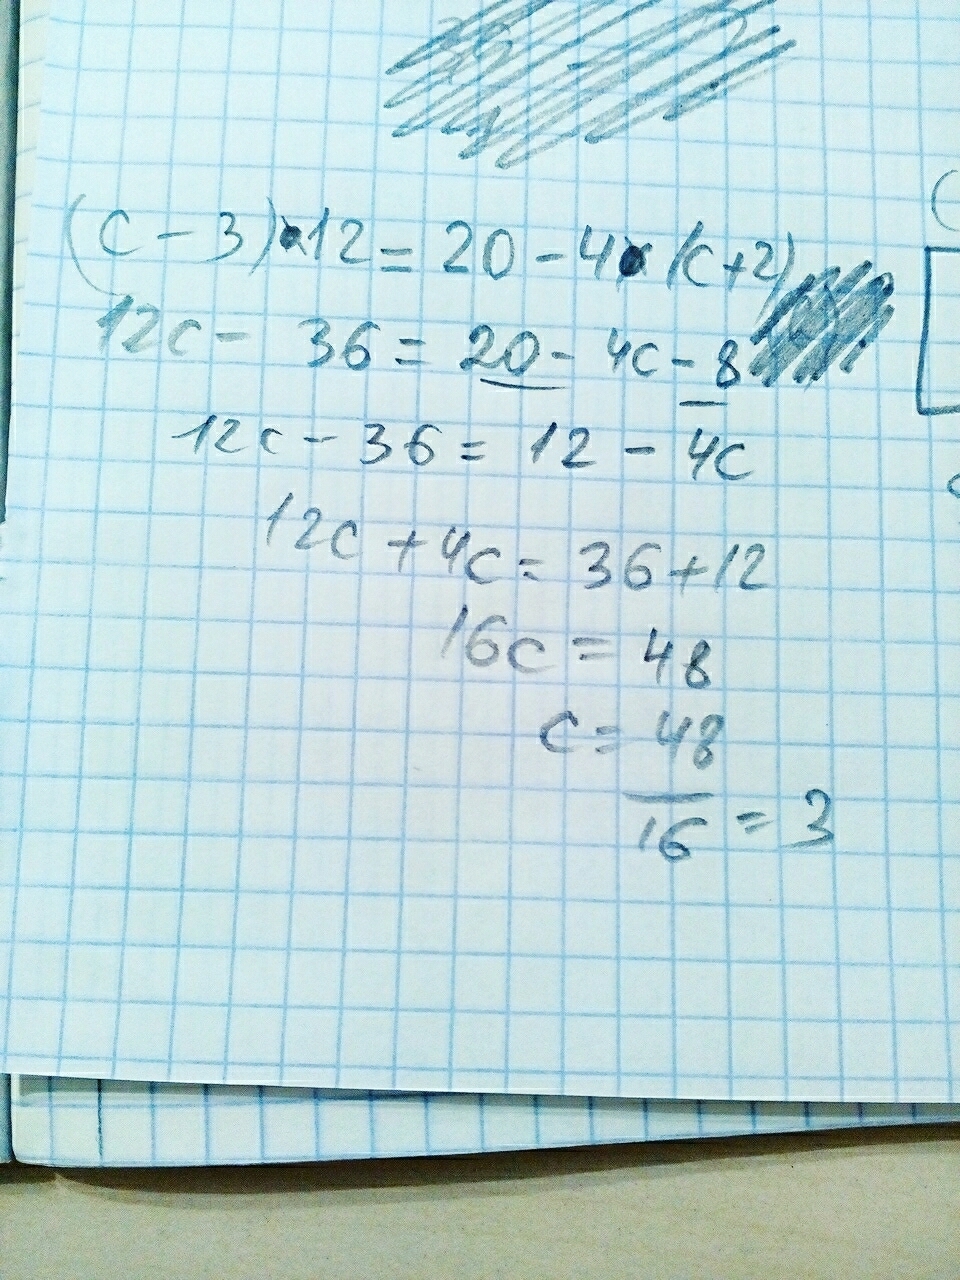 (c - 3) · 12 = 20 - 4 · (c + 2)
12c - 36 = 20 - 4c - 8
12c - 36 = 12 - 4c
12c + 4c = 36 + 12
16c = 48
c = 48
16 = 3